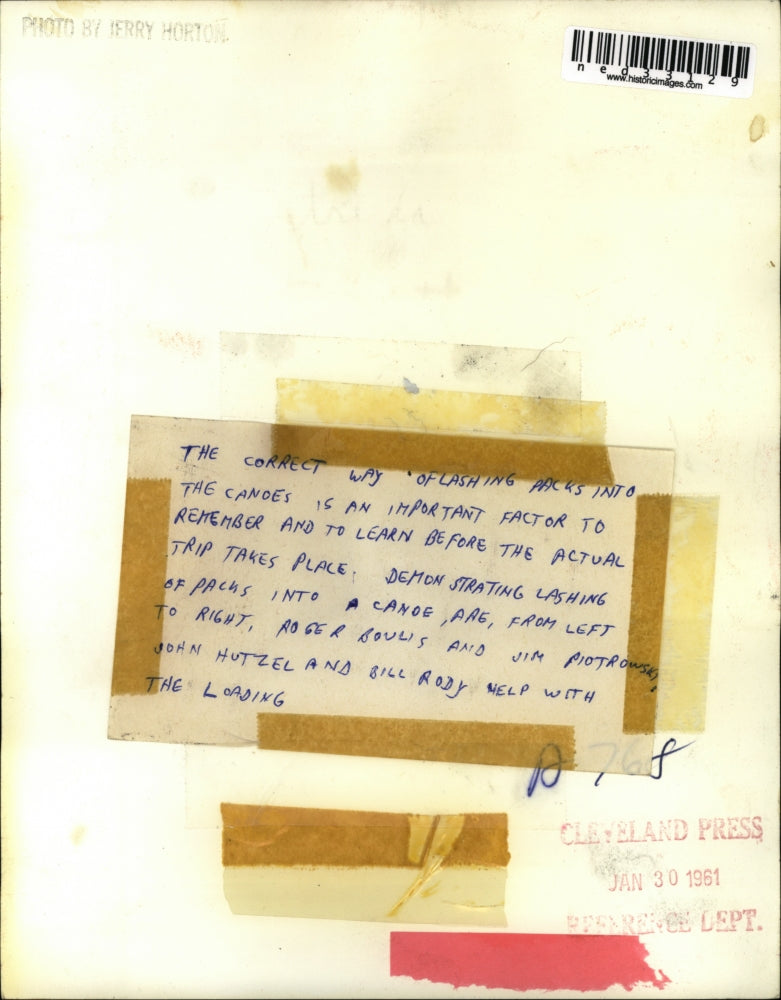 PHOTO BY JERRY HORTON.
ned33129
www.historicimages.com
THE CORRECT WAY OF LASHING PACKS INTO
THE CANOES IS AN IMPORTANT FACTOR TO
REMEMBER AND TO LEARN BEFORE THE ACTUAL
TRIP TAKES PLACE. DEMONSTRATING LASHING
OF PACKS INTO A CANOE, ARE, FROM LEFT
TO RIGHT, ROGER BOULIS AND JIM PIOTROWSKI,
JOHN HUTZEL AND BILL RODY HELP WITH
THE LOADING
A 768
CLEVELAND PRESS
JAN 30 1961
REFERENCE DEPT.